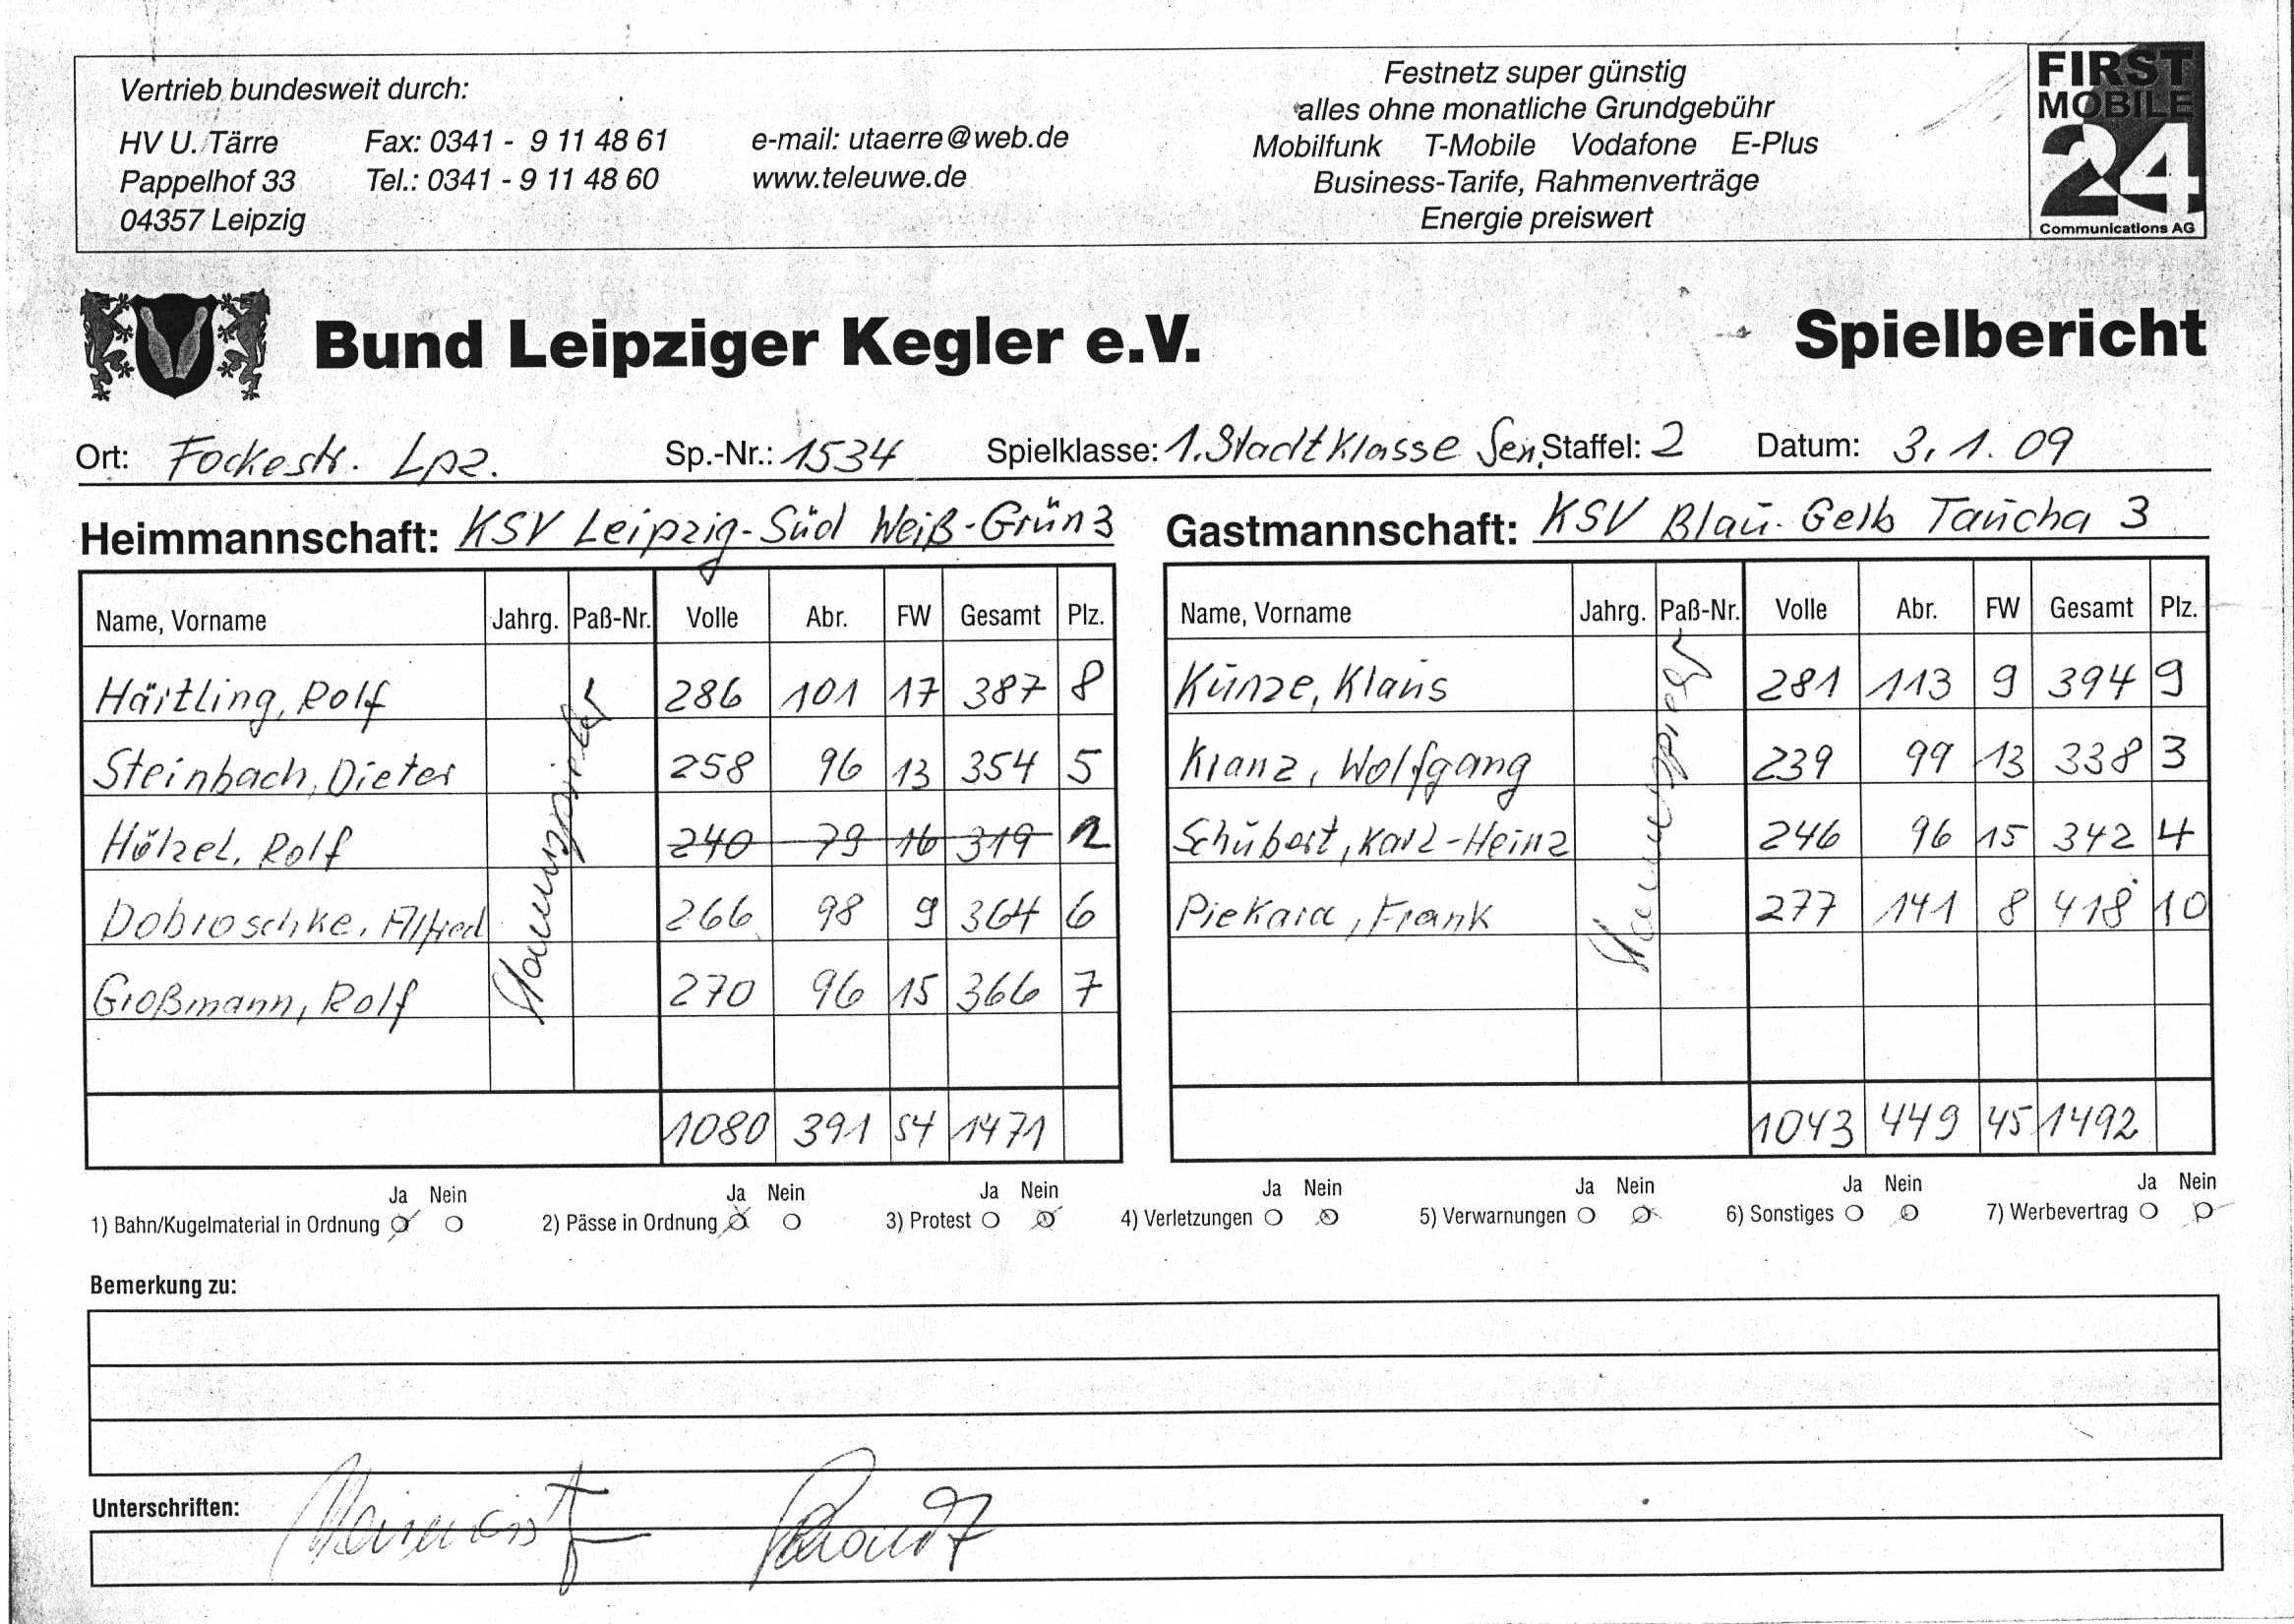 Vertrieb bundesweit durch:
HV U. Tärre Fax: 0341 - 9 11 48 61 e-mail: utaerre@web.de
Pappelhof 33 Tel.: 0341 - 9 11 48 60 www.teleuwe.de
04357 Leipzig
Festnetz super günstig
alles ohne monatliche Grundgebühr
Mobilfunk T-Mobile Vodafone E-Plus
Business-Tarife, Rahmenverträge
Energie preiswert
FIRST
MOBILE
24
Communications AG
Bund Leipziger Kegler e.V. Spielbericht
Ort: Fockestr. Lpz. Sp.-Nr.: 1534 Spielklasse: 1. Stadtklasse Sen. Staffel: 2 Datum: 3.1.09
Heimmannschaft: KSV Leipzig-Süd Weiß-Grün 3
Name, Vorname Jahrg. Paß-Nr. Volle Abr. FW Gesamt Plz.
Härtling, Rolf 286 101 17 387 8
Steinbach, Dieter 258 96 13 354 5
Hölzel, Rolf 240 79 16 319 2
Dobroschke, Alfred 266 98 9 364 6
Großmann, Rolf 270 96 15 366 7
Stammspieler
1080 391 54 1471
Gastmannschaft: KSV Blau-Gelb Taucha 3
Name, Vorname Jahrg. Paß-Nr. Volle Abr. FW Gesamt Plz.
Kunze, Klaus 281 113 9 394 9
Kranz, Wolfgang 239 99 13 338 3
Schubert, Karl-Heinz 246 96 15 342 4
Piekara, Frank 277 141 8 418 10
Stammspieler
1043 449 45 1492
Ja Nein Ja Nein Ja Nein Ja Nein Ja Nein Ja Nein Ja Nein
1) Bahn/Kugelmaterial in Ordnung 2) Pässe in Ordnung 3) Protest 4) Verletzungen 5) Verwarnungen 6) Sonstiges 7) Werbevertrag
Bemerkung zu:
Unterschriften: